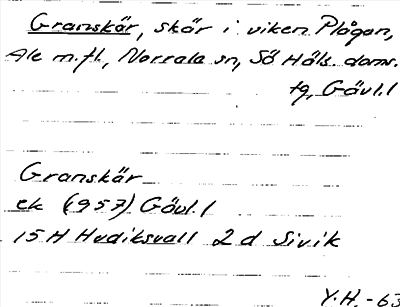 Granskär, skär i viken Plågan,
Ale m.fl., Norrala sn, Sö Häls. doms.
tg, Gävl.l
Granskär
ek (1957) Gävl.l
15H Hudiksvall 2 d Sivik
Y.H. -63